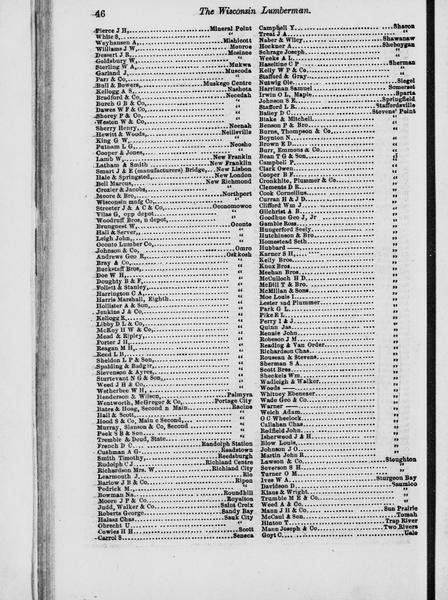 46
The Wisconsin Lumberman.
Pierce J H, Mineral Point
White S, "
Weyhausen A, Mishicott
Williams J W, Monroe
Dessert J R, Mosinee
Goldsbury W, "
Sterling W A, Mukwa
Garland J, Muscoda
Farr & Co, "
Bull & Bowers, Muskego Centre
Kellogg A S, Nashota
Bradford & Co, Necedah
Burch G B & Co, "
Dawes W F & Co, "
Shorey P & Co, "
Weston W & Co, "
Sherry Henry, Neenah
Hewitt & Woods, Neillsville
King G W, "
Putnam L G, Neosho
Cooper & Jones, "
Lamb W, New Franklin
Latham & Smith New Franklin
Smart J & E (manufacturers) Bridge, New Lisbon
Hale & Springsted, New London
Bell Marcus, New Richmond
Crosier & Jacobs, "
Moore & Bro, Northport
Wisconsin mnfg Co, "
Streeter J A & C & Co, Oconomowoc
Vilas G, opp depot, "
Woodruff Bros, n depot, "
Brunguest W, Oconto
Hall & Server, "
Leigh John, "
Oconto Lumber Co, "
Johnson & Co, Omro
Andrews Geo R, Oshkosh
Bray & Co, "
Buckstaff Bros, "
Doe W H, "
Doughty B & F, "
Follett & Stanley, "
Harrington C A, "
Harris Marshall, Eighth, "
Hollister A & Son, "
Jenkins J & Co, "
Kellogg R, "
Libby D L & Co, "
McKoy H W & Co, "
Mead & Ripley, "
Porter J H, "
Reagan M H, "
Reed L B, "
Sheldon L P & Son, "
Spalding & Badger, "
Stevenson & Ayres, "
Sturtevant N G & Son, "
Weed J H & Co, "
Wetherbee W H, "
Henderson & Wilson, Palmyra
Wentworth, McGregor & Co, Portage City
Bates & Hoag, Second n Main, Racine
Hall & Scott, "
Hood S & Co, Main c Second, "
Murray, Slauson & Co, Second "
Peck S B & Son "
Tremble & Doud, State "
French D C Randolph Station
Cushman A G Readstown
Smith Timothy, Reedsburgh
Rudolph C J Richland Centre
Richardson Mrs. W Richland City
Learmouth J, Rio
Barlow J W & Co Ripon
Pedrick M, "
Bowman Na, Roundhill
Moore J P & Co, Royalton
Judd, Walker & Co, Saint Croix
Roberts George Sandy Bay
Halasz Chas Sauk City
Obrecht U "
Cowles H H Scott
Carrol S Seneca
Campbell Y Sharon
Treat J A "
Naber & Wiley Shawanaw
Hockner A Sheboygan
Schrage Joseph "
Weeks A L "
Haseltine C P Sherman
Kelly W P & Co "
Stafford & Gray "
Nutwig Ole Siegel
Harriman Samuel Somerset
Irwin O L, Maple, Sparta
Johnson S R Springfield
Stafford L R Staffordsville
Bailey D C Stevens' Point
Blake & Mitchell "
Benson P & Bro "
Burns, Thompson & Co "
Boynton N "
Brown E D "
Burr, Emmons & Co "
Bean T G & Son "
Campbell F "
Clark Owen "
Cooper B F "
Cronkhite, Plummer & Co "
Clements D R "
Cook Cornelius "
Curran H & J D "
Clifford Wm J "
Gilchrist A B "
Goodhue Geo J, Jr "
Gamble Ross "
Hungerford Seely "
Hutchinson & Bro "
Homestead Seth "
Hubbard — "
Karner S H "
Kelly Bros "
Knox Bros "
Meehan Bros "
McCulloch H D "
McDill T & Bro "
McMillan & Sons "
Moe Louis "
Lester and Plummer "
Park G L "
Pike E L "
Perry I & J "
Quinn Jas "
Rennie John "
Robeson J M "
Reading & Van Order "
Richardson Chas "
Rousseau & Stevens "
Sherman S A "
Scott Bros "
Sheckels Wm "
Wadleigh & Walker "
Woods — "
Whitney Ebenezer "
Wade Geo & Co "
Warner — "
Welch Adam "
O C Wheelock "
Callahan Chas "
Redfield John "
Isherwood J H "
Blow Louis "
Johnson J O "
Martin John B "
Lawson & Co Stoughton
Severson S H "
Turner O M "
Ives W A Sturgeon Bay
Davidson D Suamico
Klaus & Wright "
Trumble M E & Co "
Weed A & Co "
Mann J H & Co Sun Prairie
McCaul & Son Tomah
Hinton T Trap River
Mann Joseph & Co Two Rivers
Goyt C Uale